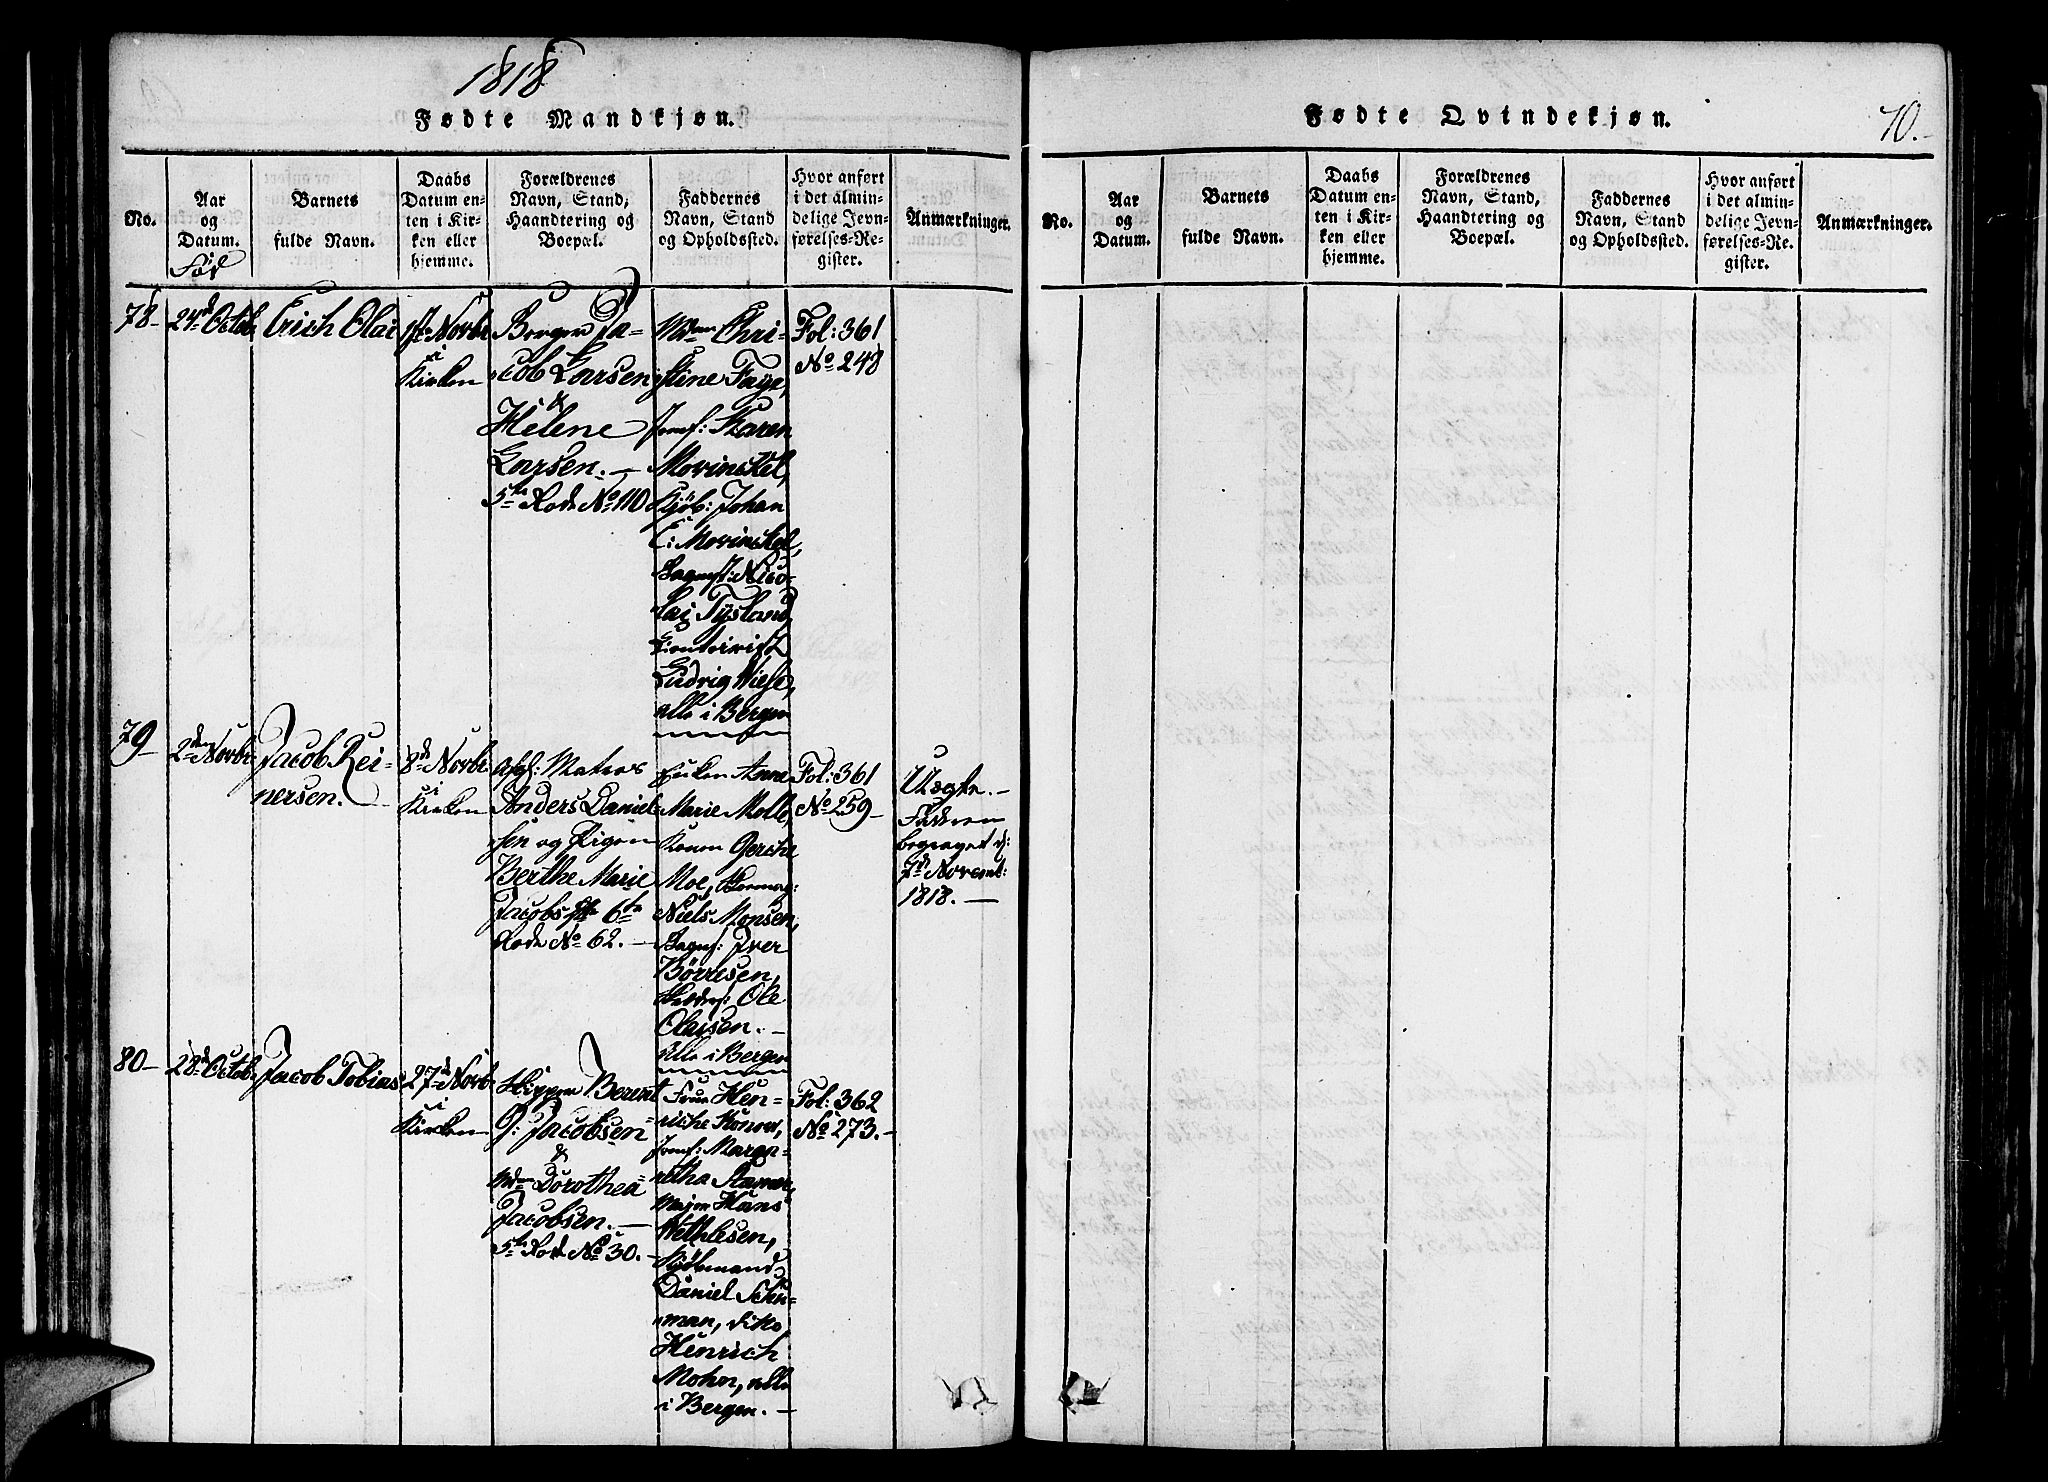 1818
Fødte Mandkjøn.
No.
Aar
og
Datum.
Fød
Barnets
fulde Navn.
Daabs
Datum en-
ten i Kir-
ken eller
hjemme.
Forældrenes
Navn, Stand,
Haandtering og
Boepæl.
Faddernes
Navn, Stand
og Opholdssted.
Hvor anført
i det almin-
delige Jevn-
førelses-Re-
gister.
Anmærkninger.
78-
24d Octob
Erich Olai
1ste Novbr
i
Kirken
Borger Ja-
cob Larsen
&
Helene
Larsen. -
5te Rode No 110
Md Chri-
stine Faye,
Jomf: Karen
Morinckel,
Kjöb: Johan
C: Morinckel,
Nico-
lai Tysland,
Contoirist
Ludvig Wiese,
alle i Bergen
Fol: 361
No 248
79-
2den Novbr
Jacob Rei-
nersen. -
8d Novbr
i
Kirken
Afg: Matros
Anders Daniel-
sen og Pigen
Berthe Marie
Jacobs 6te
Rode No 62. -
Enken Anne
Marie Molle,
Konen Gerche
Moe,
Niels Monsen,
Iver
Börresen,
Ole
Olaisen. -
alle i Bergen
Fol: 361
No 259-
Uægte. -
Faderen
begravet d:
7d Novemb:
1818. -
80-
28d Octob
Jacob Tobias
27d Novb
i
Kirken
Skipper Berent
J: Jacobsen
&
Md Dorothea
Jacobsen. -
5te Rode No 30. -
Frue Hen-
riche Konow,
Jomf: Marga-
retha
Major Hans
Wethlesen,
Kjöbmand
Daniel Schu-
man, dito
Henrich
Mohn, alle
i Bergen. -
Fol: 362
No 273. -
Fødte Qvindekjøn.
70.-
No.
Aar
og
Datum.
Barnets
fulde Navn.
Daabs
Datum en-
ten i Kir-
ken eller
hjemme.
Forældrenes
Navn, Stand,
Haandtering og
Boepæl.
Faddernes
Navn, Stand
og Opholdssted.
Hvor anført
i det almin-
delige Jevn-
førelses-Re-
gister.
Anmærkninger.